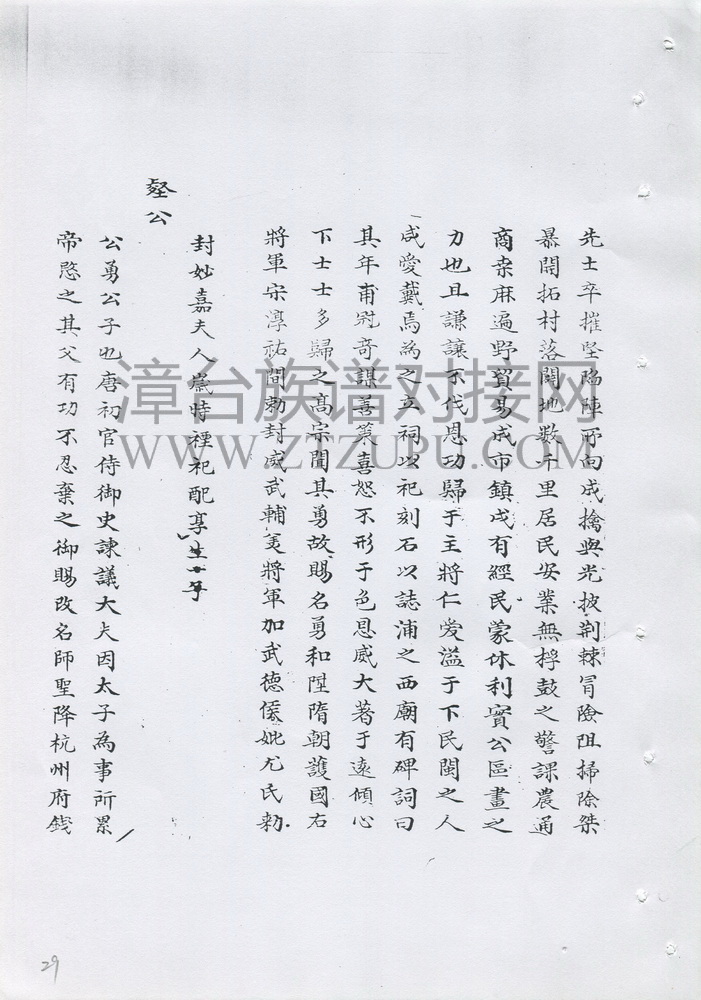 先士卒摧堅陷陣所向成擒與光披荆棘冒險阻掃除桀
暴開拓村落闢地数千里居民安業無桴鼓之警課農通
商桒麻遍野貿易成市鎮戍有經民蒙休利實公區畫之
力也且謙讓不伐恩功歸于主將仁爱溢于下民閩之人
咸愛戴焉為之立祠以祀刻石以誌浦之西廟有碑詞曰
其年甫冠奇謀善筭喜怒不形于色恩威大著于遠傾心
下士士多歸之高宗聞其勇故賜名勇和陞隋朝護國右
將軍宋淳祐間勅封威武輔美將軍加武德侯妣尤氏勅
封妙嘉夫人歲時禋祀配享
壑公
公勇公子也唐初官侍御史諫議大夫因太子為事所累
帝愍之其父有功不忍棄之御賜改名師聖降杭州府錢
漳台族谱对接网
WWW.ZTZUPU.COM
29